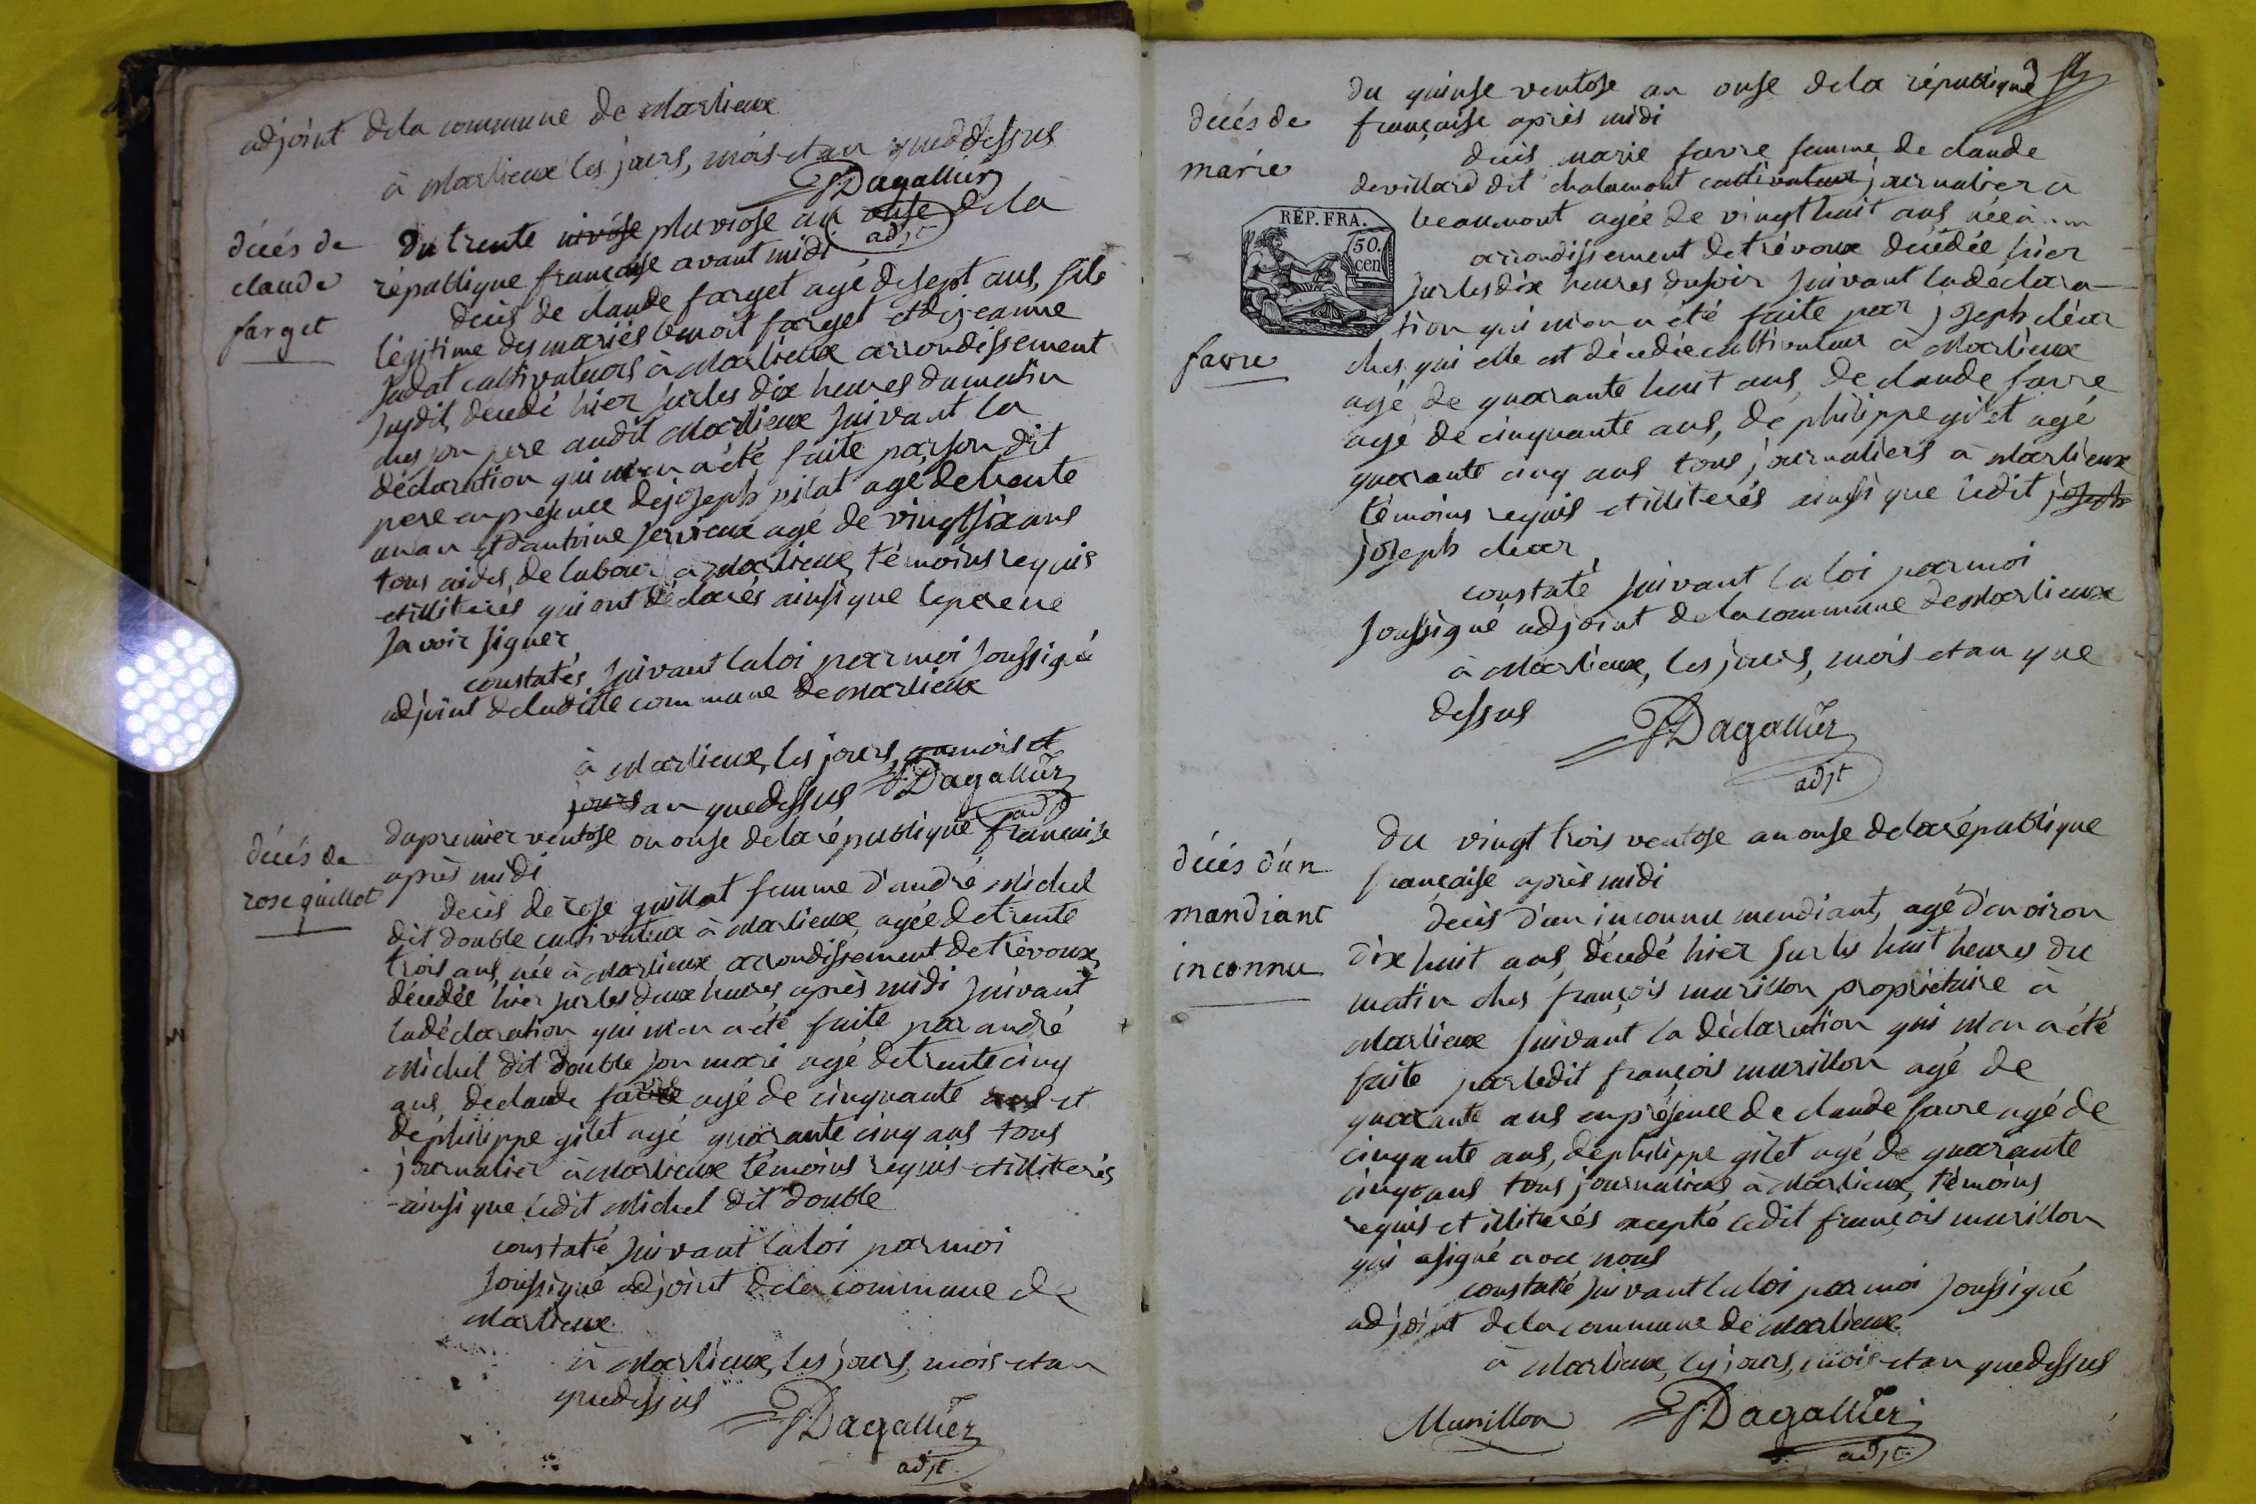 adjoint dela commune de Marlieux
à Marlieux les jours, mois et an que dessus
Dagallier
adjt
décés de
claude
farget
Du trente nivôse pluviose an onse dela
républigue française avant midi
décis de claude farget agé de sept ans, fils
légitime des mariés benoit farget et de jeanne
Judat cultivateurs à Marlieux arrondissement
susdit, décedé hier sur les dix heures du matin
ches son pere audit Marlieux suivant la
déclaration qui m'en a été faite par son dit
pere en présence de joseph pilat agé de trente
un an et d'antoine servieux agé de vingt six ans
tous aides de labour à Marlieux, témoins requis
et illiterés qui ont déclarés ainsi que le pere ne
savoir signer
constatés, suivant la loi par moi soussigné
adjoint deladitte commune de Marlieux
à Marlieux, les jours, mois et
jours an que dessus Dagallier
adjt
décés de
rose guillot
du premier ventose an onse dela républigue française
après midi
décis de rose guillot femme d'andré Michel
dit double cultivateur à Marlieux, agée de trente
trois ans, née à Marlieux arrondissement de trévoux,
décedée hier sur les deux heures après midi suivant
la déclaration qui m'en a été faite par andré
Michel dit double son mari agé de trente cinq
ans, de claude favre agé de cinquante ans et
de philippe gilet agé quarante cinq ans tous
journalier à Marlieux témoins requis et illiterés
ainsi que ledit Michel dit double
constaté, suivant la loi par moi
soussigné adjoint dela commune de
Marlieux
à Marlieux, les jours, mois et an
que dessus
Dagallier
adjt
décés de
marie
RÉP. FRA.
50.
cen
favre
du quinse ventose an onse dela républigue
française après midi
décis marie favre femme de claude
devillard dit chalamont cultivateur journalier à
beaumont agée de vingt huit ans née à
arrondissement de trévoux décédée hier
sur les dix heures du soir suivant la déclara-
tion qui m'en a été faite par joseph cléar
ches qui elle est décedée cultivateur à Marlieux
agé de quarante huit ans, de claude favre
agé de cinquante ans, de philippe gilet agé
quarante cinq ans tous journaliers à Marlieux
témoins requis et illiterés ainsi que ledit joseph
joseph clear
constaté suivant la loi par moi
soussigné adjoint dela commune de Marlieux
à Marlieux, les jours, mois et an que
dessus
Dagallier
adjt
décés d'un
mandiant
inconnu
du vingt trois ventose an onse dela républigue
française après midi
décis d'un inconnu mendiant, agé d'environ
dix huit ans, décedé hier sur les huit heures du
matin ches françois murillon propriétaire à
Marlieux suivant la déclaration qui m'en a été
faite par ledit françois murillon agé de
quarante ans en présence de claude favre agé de
cinquante ans, de philippe gilet agé de quarante
cinq ans tous journaliers à Marlieux, témoins
requis et illiterés excepté ledit françois murillon
qui a signé avec nous
constaté suivant la loi par moi soussigné
adjoint dela commune de Marlieux
à Marlieux, les jours, mois et an que dessus
Murillon
Dagallier
adjt